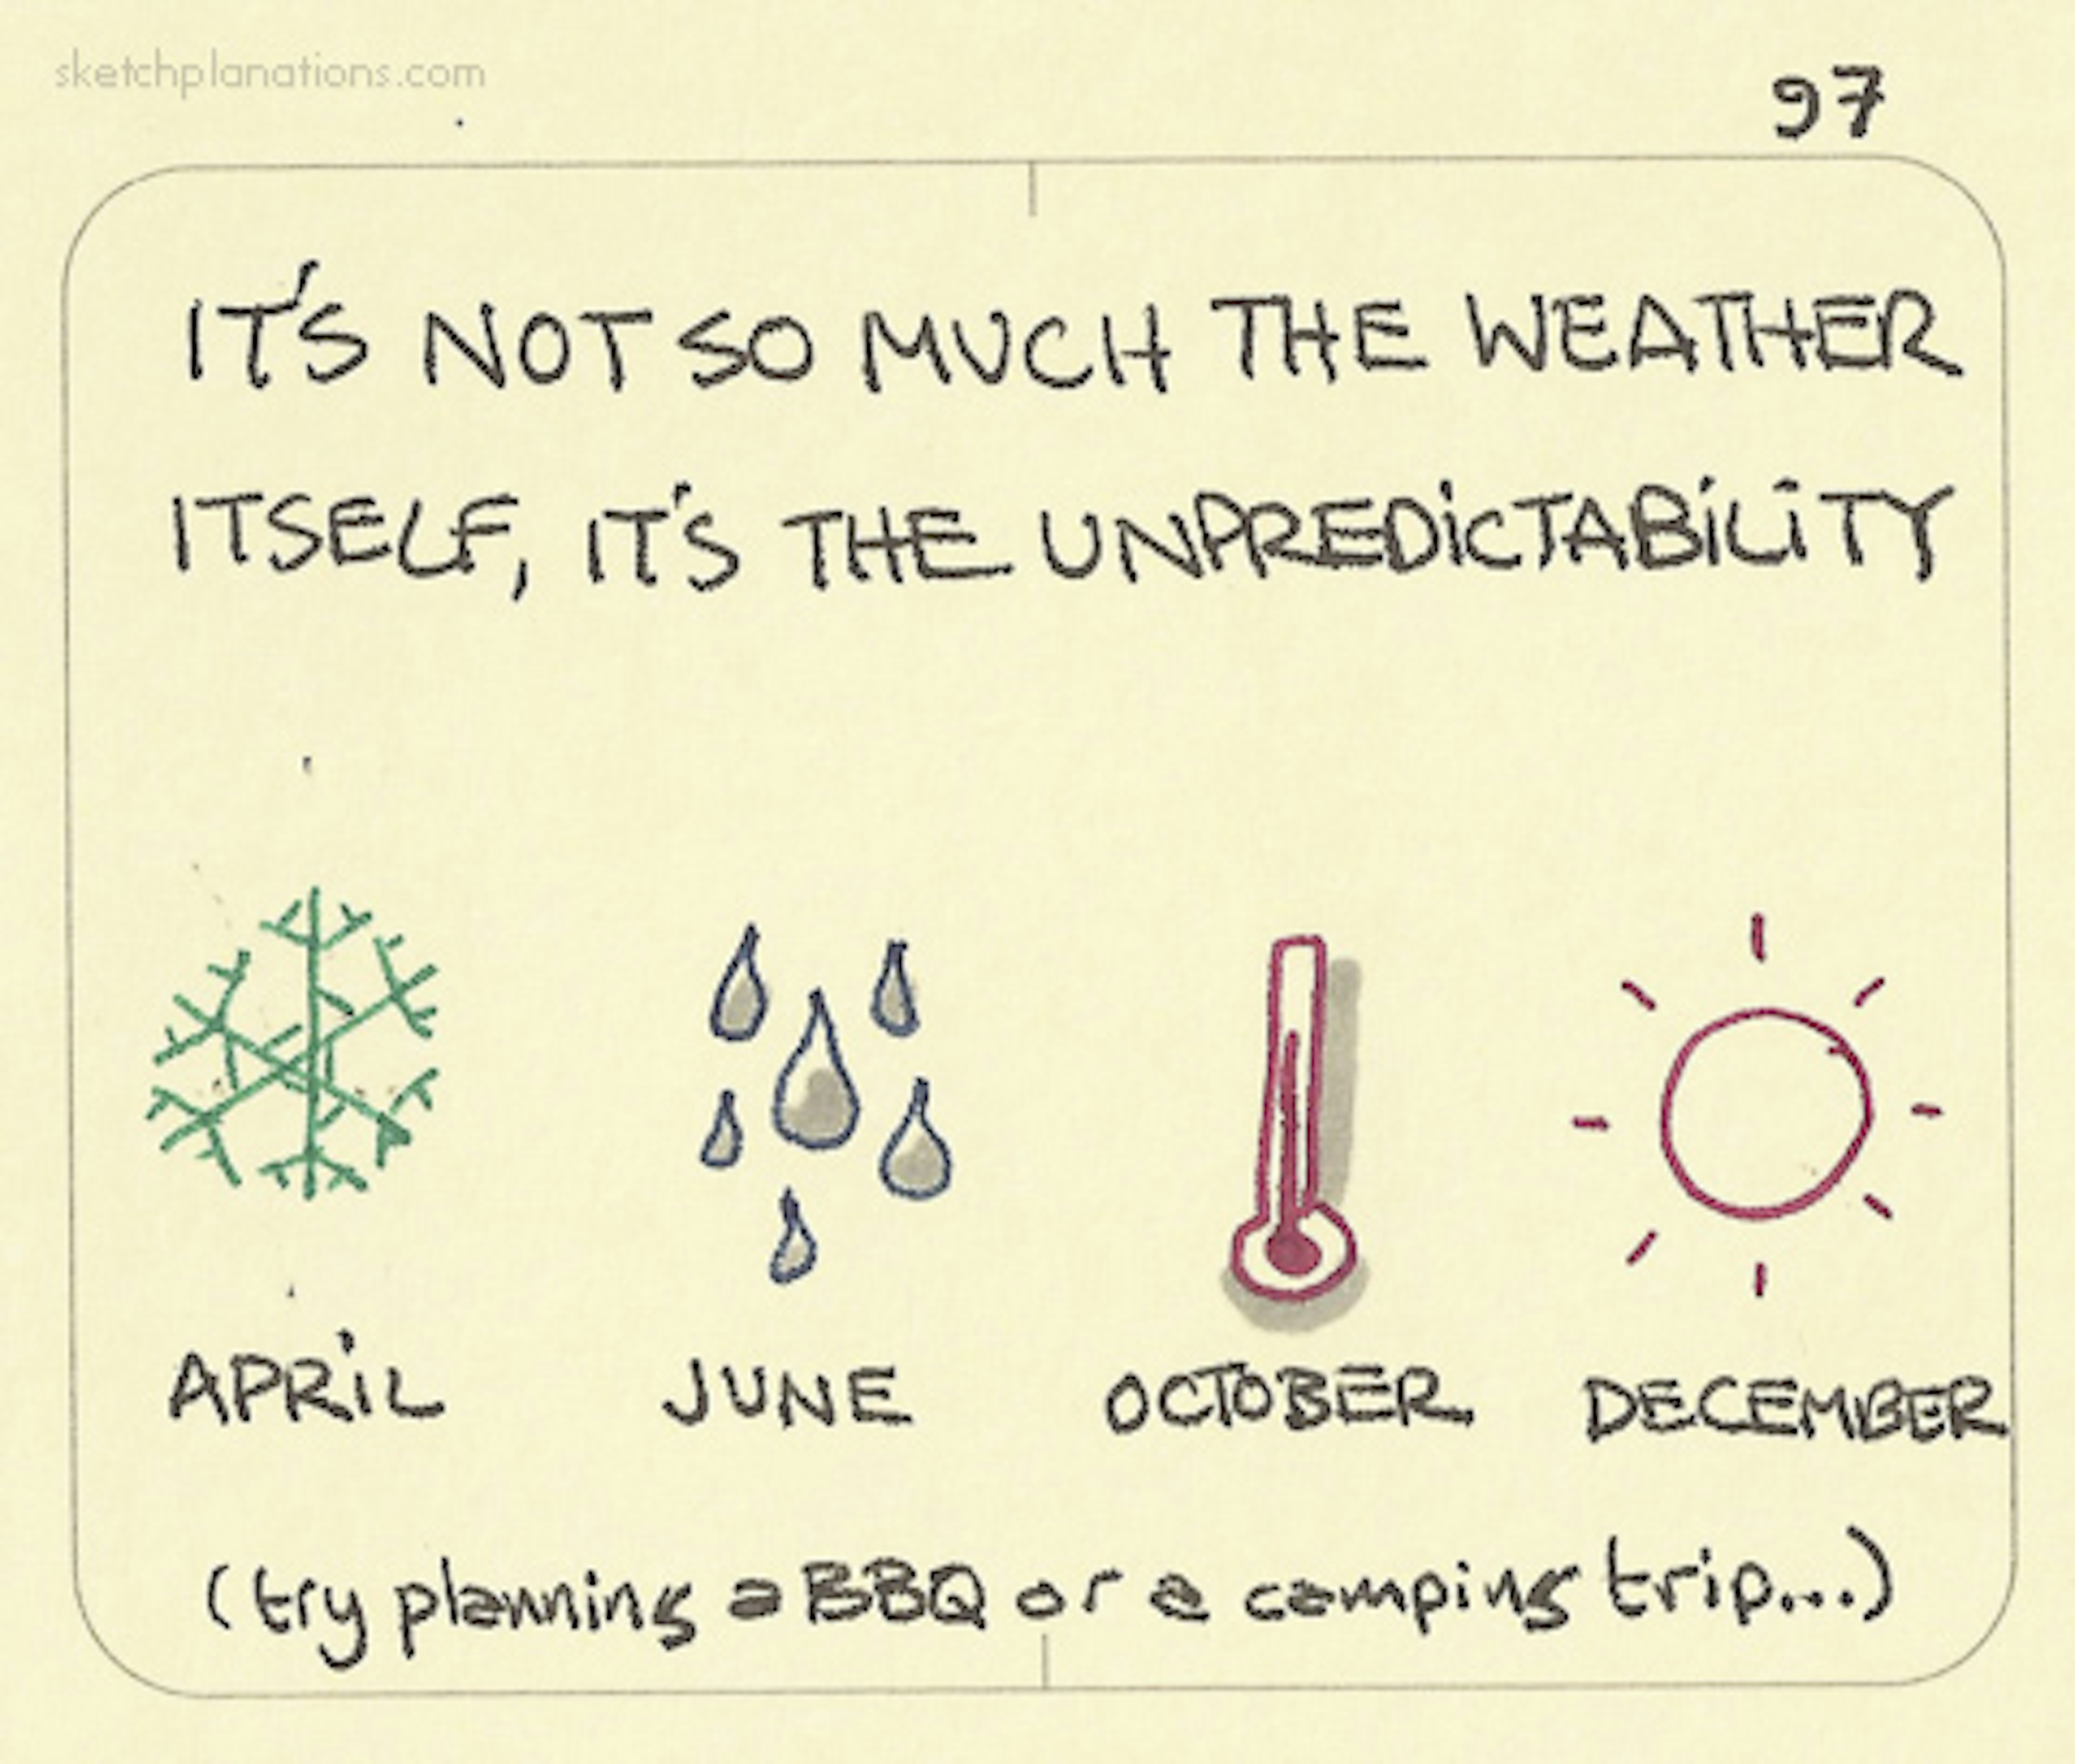 sketchplanations.com
97
IT'S NOT SO MUCH THE WEATHER
ITSELF, IT'S THE UNPREDICTABILITY
APRIL JUNE OCTOBER DECEMBER
(try planning a BBQ or a camping trip...)